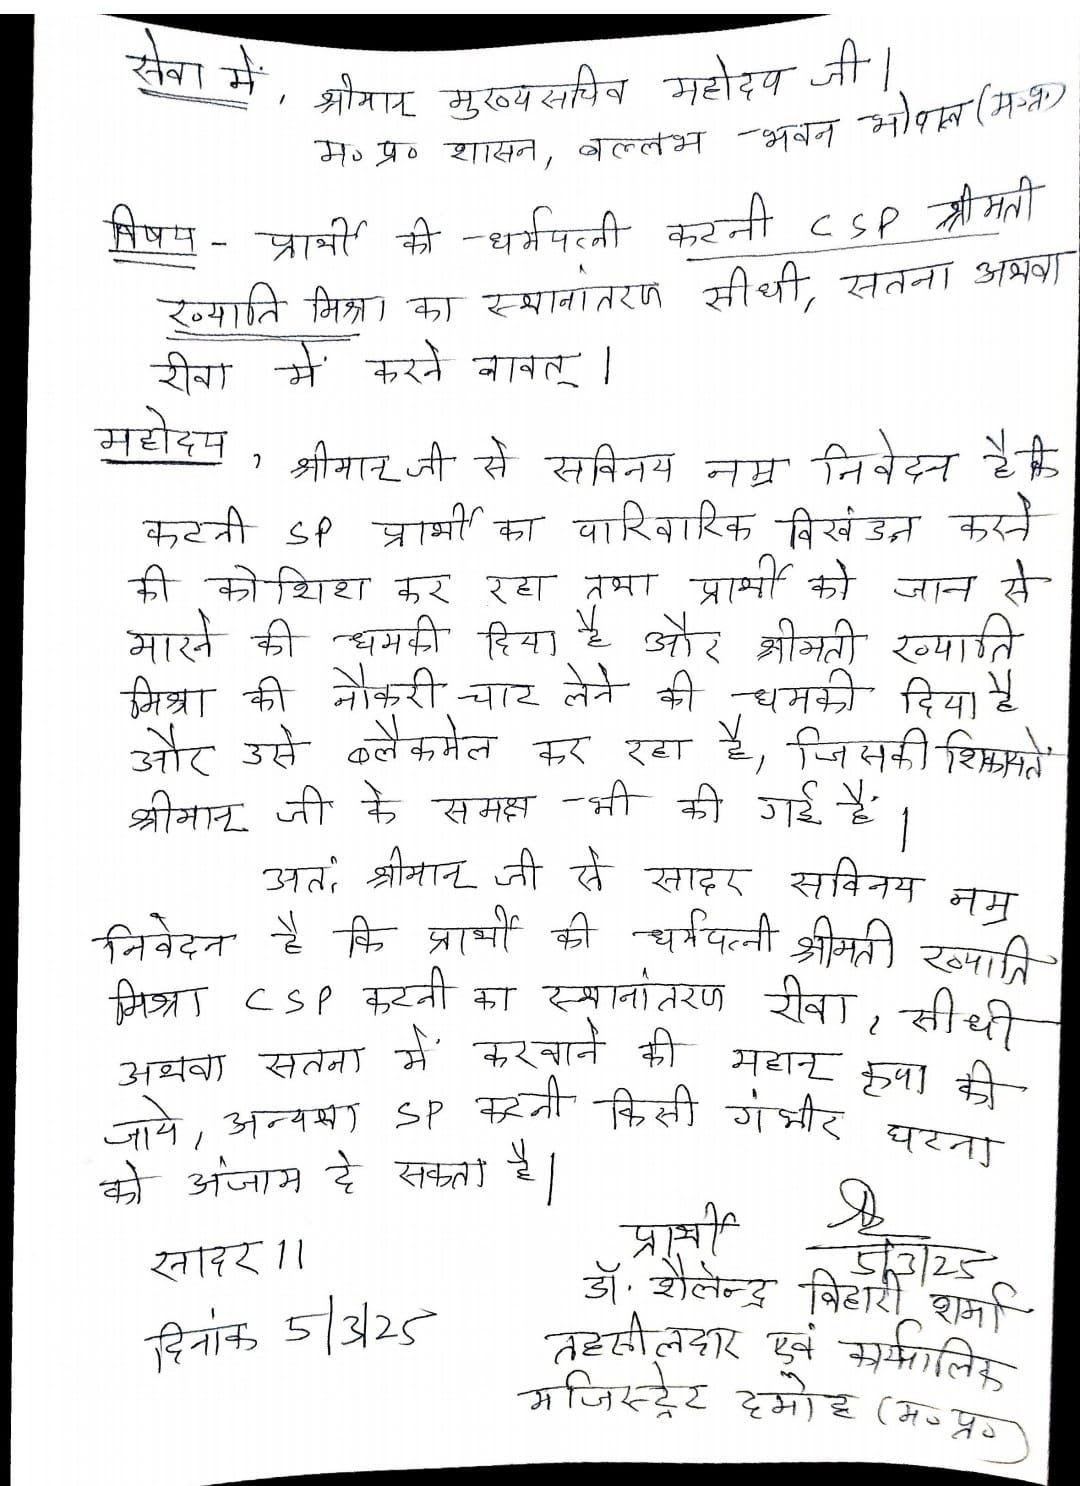 सेवा में,
श्रीमान् मुख्य सचिव महोदय जी।
म० प्र० शासन, बल्लभ भवन भोपाल (म.प्र.)
विषय - प्रार्थी की धर्मपत्नी कटनी CSP श्रीमती
ख्याति मिश्रा का स्थानांतरण सीधी, सतना अथवा
रीवा में करने बावत्।
महोदय,
श्रीमान् जी से सविनय नम्र निवेदन है कि
कटनी SP प्रार्थी का पारिवारिक विखंडन करने
की कोशिश कर रहा तथा प्रार्थी को जान से
मारने की धमकी दिया है और श्रीमती ख्याति
मिश्रा की नौकरी चाट लेने की धमकी दिया है
और उसे ब्लैकमेल कर रहा है, जिसकी शिकायतें
श्रीमान् जी के समक्ष भी की गई हैं।
अतः श्रीमान् जी से सादर सविनय नम्र
निवेदन है कि प्रार्थी की धर्मपत्नी श्रीमती ख्याति
मिश्रा CSP कटनी का स्थानांतरण रीवा, सीधी
अथवा सतना में करवाने की महान् कृपा की
जाये, अन्यथा SP कटनी किसी गंभीर घटना
को अंजाम दे सकता है।
सादर ॥
दिनांक 5/3/25
प्रार्थी
5/3/25
डॉ. शैलेन्द्र बिहारी शर्मा
तहसीलदार एवं कार्यपालिक
मजिस्ट्रेट दमोह (म० प्र०)